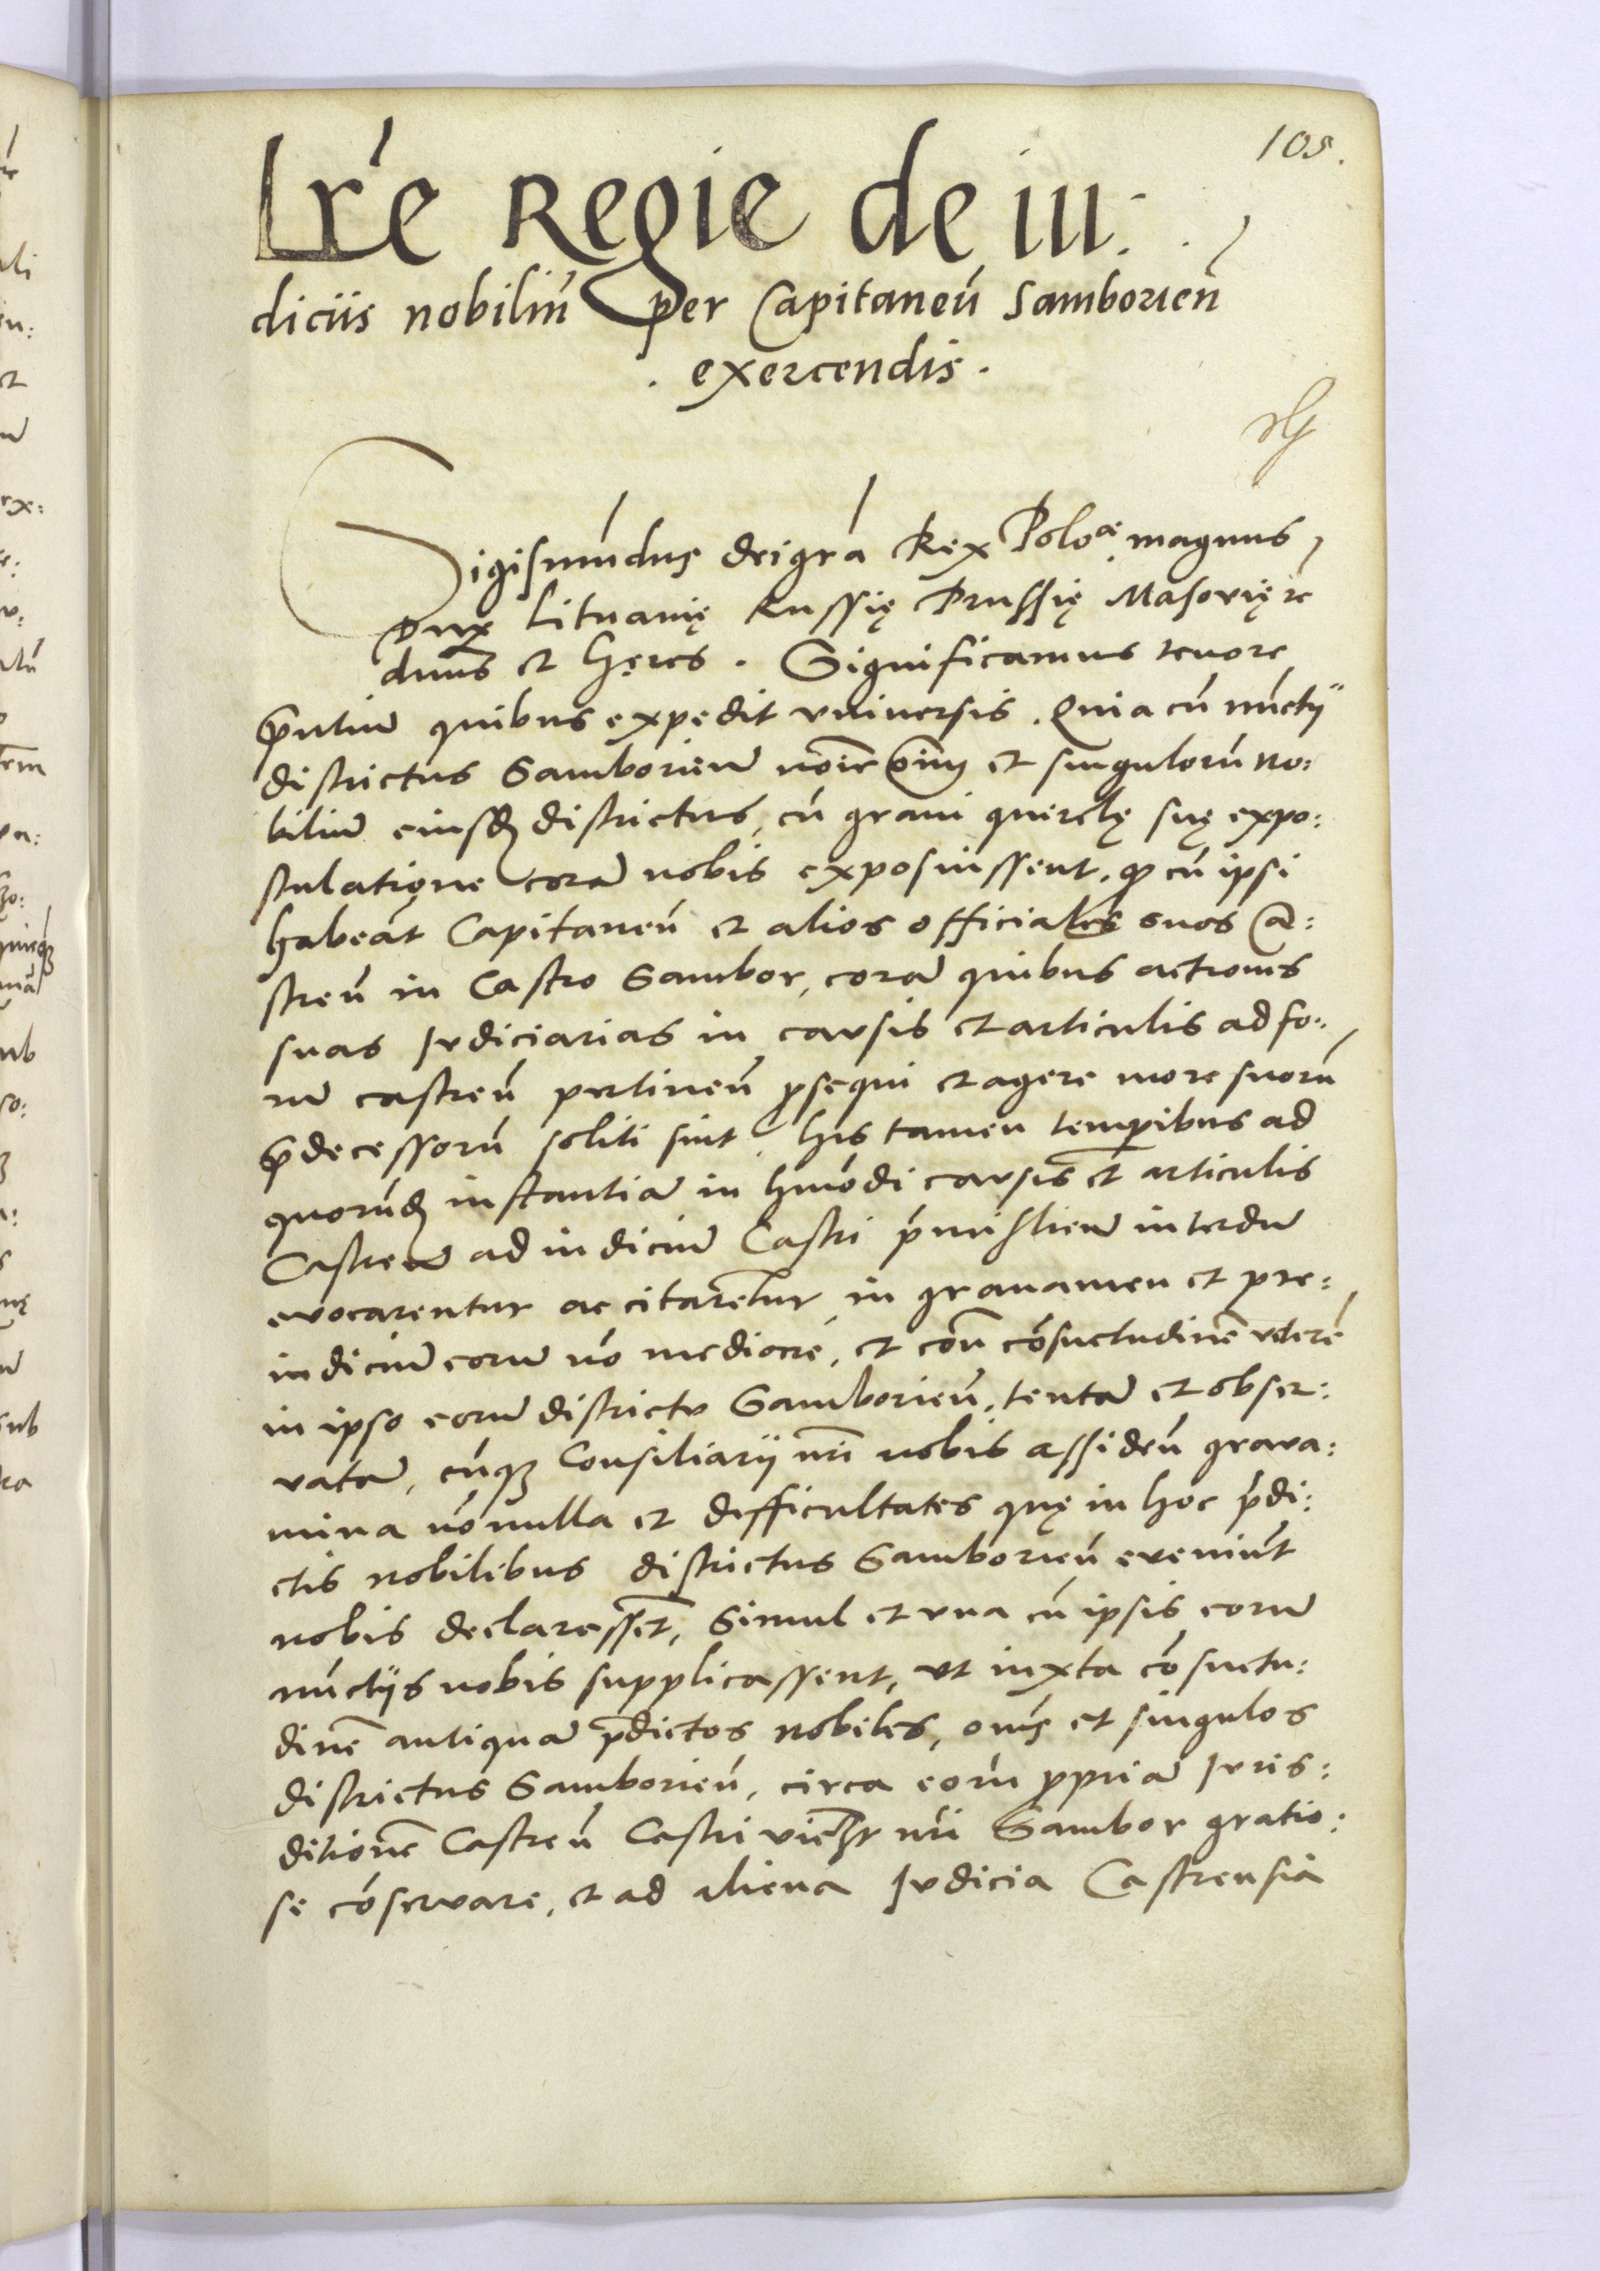 105.
Lr̃e Regie de iu:
diciis nobiliũ per Capitaneũ Samborieñ
. exercendis .
Sigismũdus dei gr̃a Rex Polo͞e magnus
Dux Lituanię Russię Prussię Masovię ꝛc̃
dnũs et hęres . Significamus tenore
p̃ntium quibus expedit vniversis . Quia cũ nũctij
districtus Samborien̄ noīe om̄iū et singulorũ no:
bilium eiusdē districtus, cũ gravi querelę suę expo:
stulatione coram̄ nobis exposuissent, ꝙ cũ ipsi
habeãt Capitaneũ et alios officiales suos Ca:
streñ in Castro Sambor, coram̄ quibus actiones
suas Iudiciarias in causis et articulis ad fo:
rum castreñ pertineñ ꝓsequi et agere more suorũ
p̃decessorũ soliti sint, his tamen tempibus ad
quorũdē instantiam̄ in hmõdi causis et articulis
Castren̄ ad iudicium Castri p̃mislien̄ interdum
evocarentur ac citarent̃ur in gravamen et pre:
iudicium eorum nõ mediocrẽ, et con̄ cõsuetudinē veterẽ
in ipso eorum districtu Samborieñ, tentam̄ et obser:
vatam̄, cũqꝫ Consiliarij nr̃i nobis assideñ grava:
mina nõnulla et difficultates quę in hoc p̃di:
ctis nobilibus districtus Samborieñ eveniũt
nobis declarassēt, Simul et vna cũ ipsis eorum
nũctijs nobis supplicassent, vt iuxta cõsuetu:
dinē antiquam̄ p̃dictos nobiles, oñes et singulos
districtus Samborieñ, circa eorũ ꝓpriam̄ Iuris:
ditionē Castreñ Castri nr̃i Sambor gratio:
se cõservare, et ad aliena Iudicia Castrensia